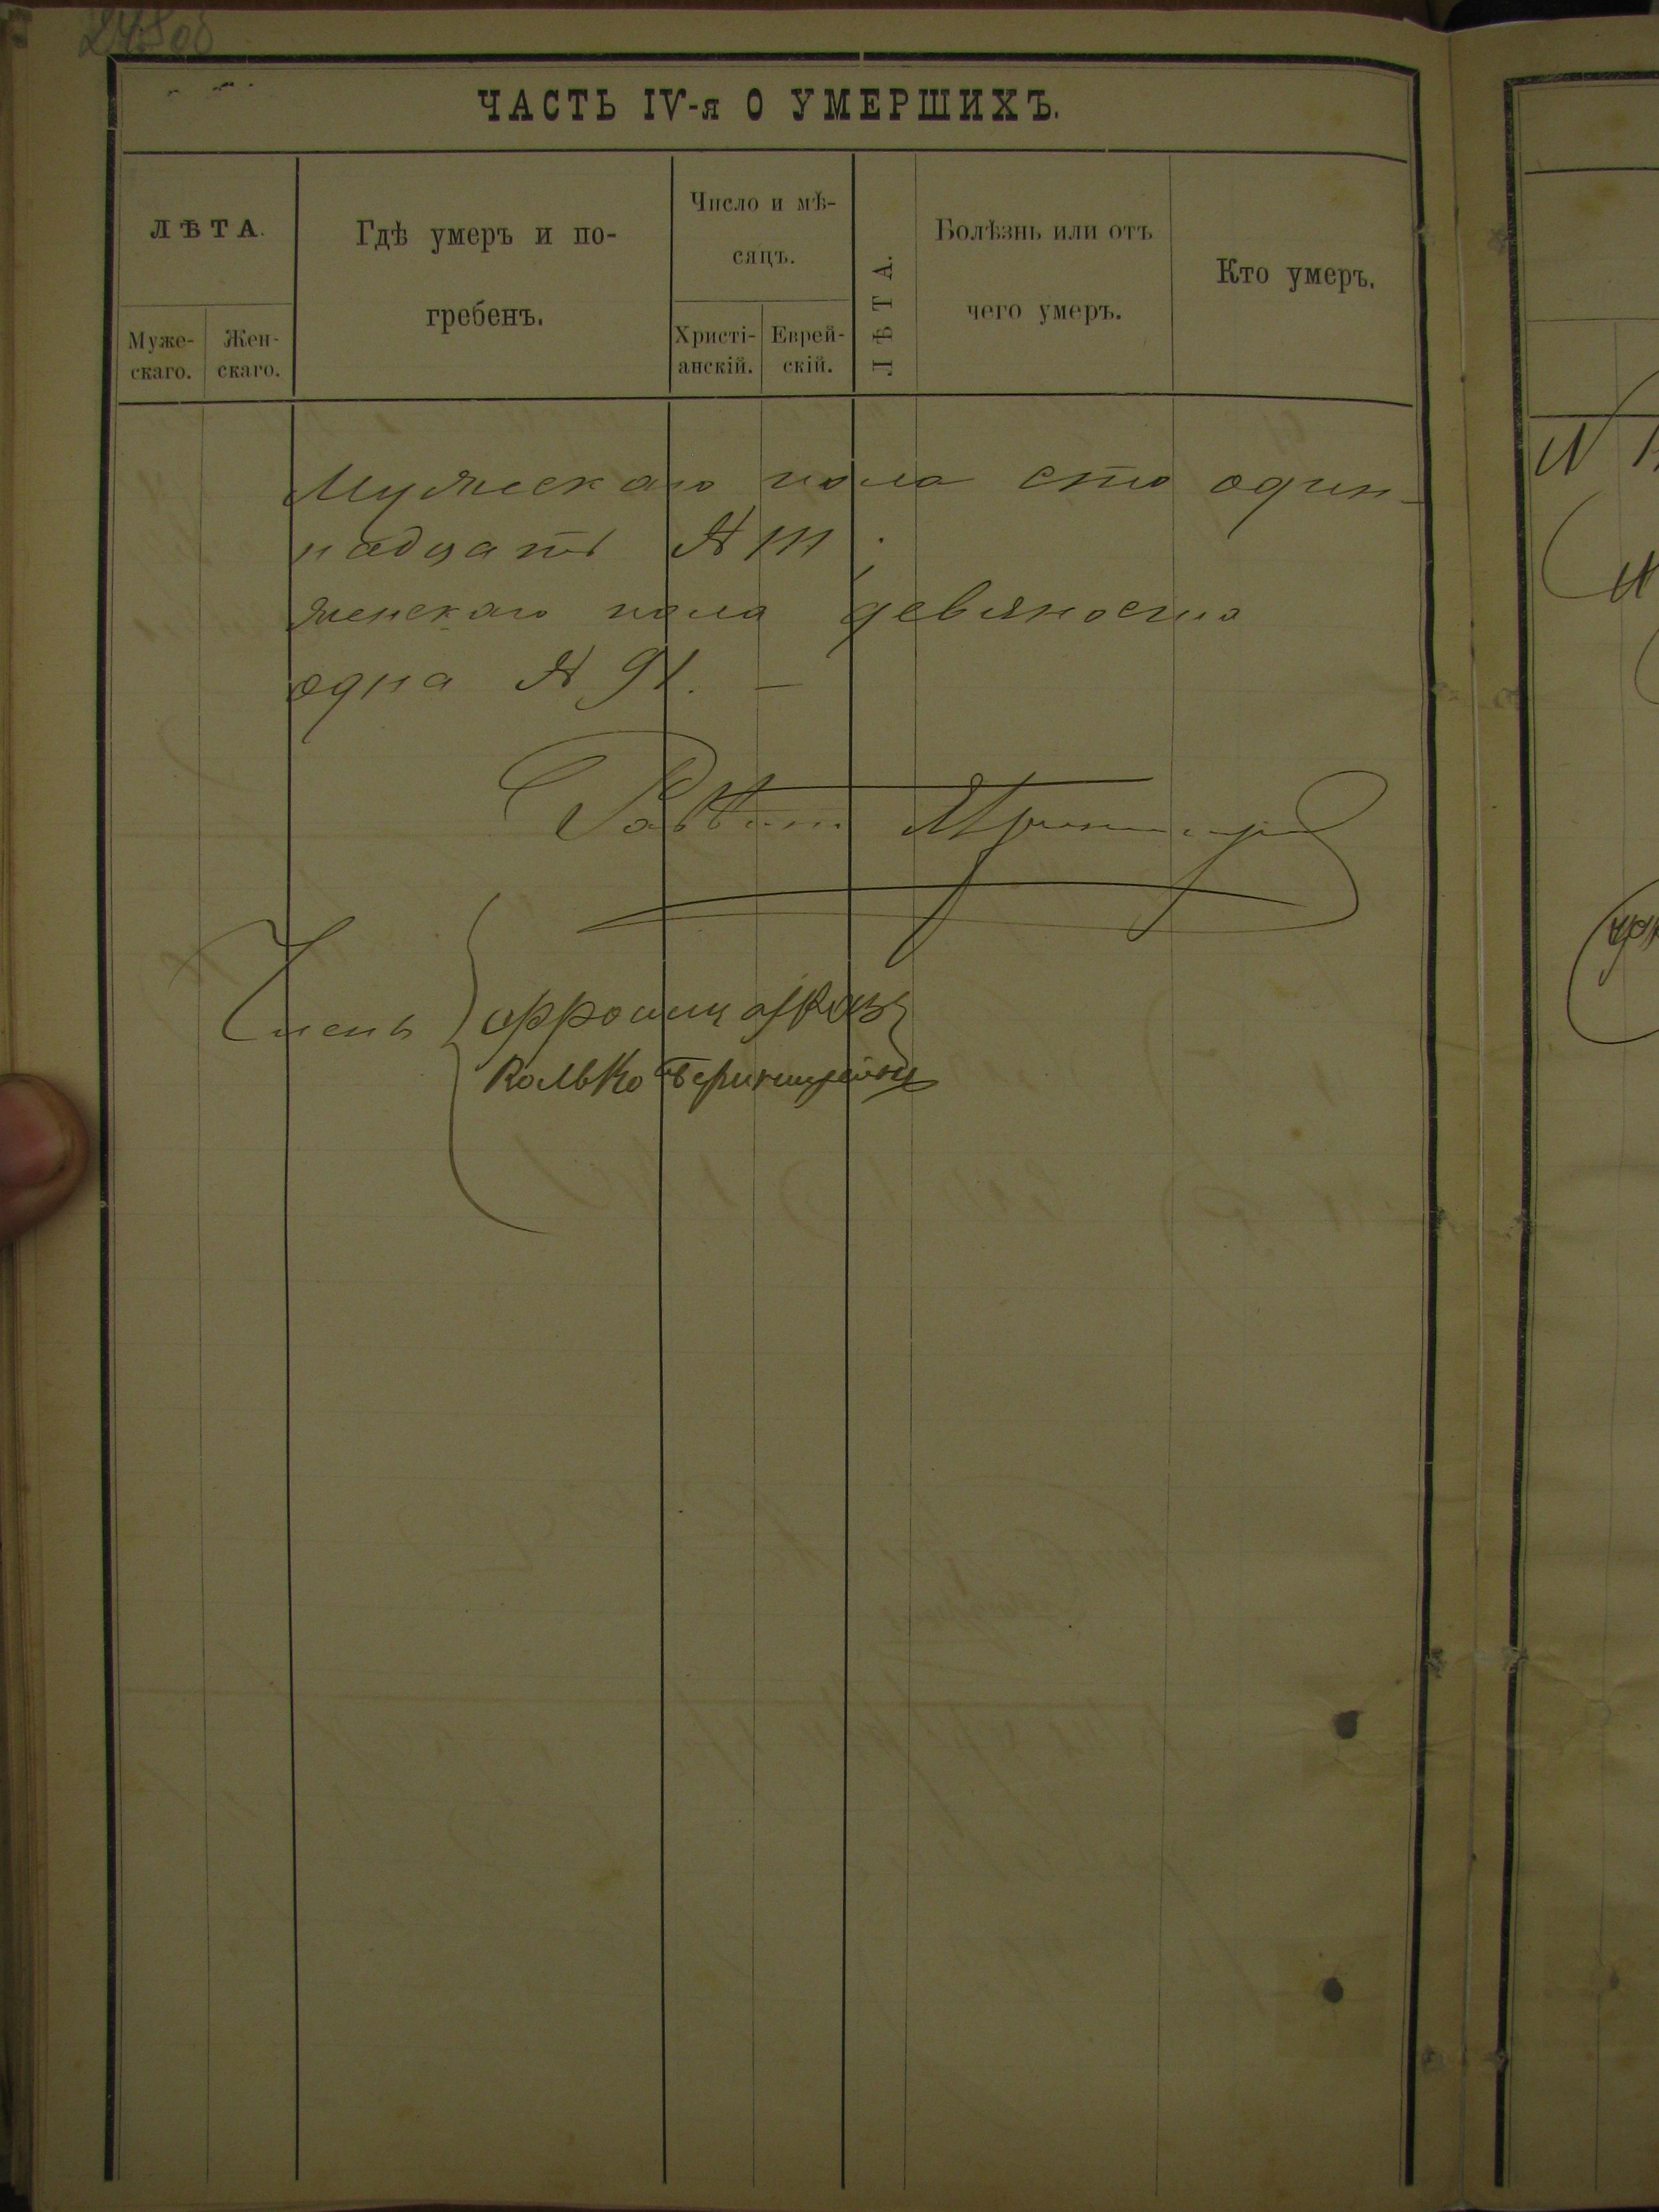 ЧАСТЬ IV-я О УМЕРШИХЪ.
ЛѢТА.
Муже-
скаго.
Жен-
скаго.
Гдѣ умеръ и по-
гребенъ.
Число и мѣ-
сяцъ.
Христі-
анскій.
Еврей-
скій.
ЛѢТА.
Болѣзнь или отъ
чего умеръ.
Кто умеръ.
Мужескаго пола сто один-
надцать № 111;
женскаго пола девяносто
одна № 91. —
Раввин